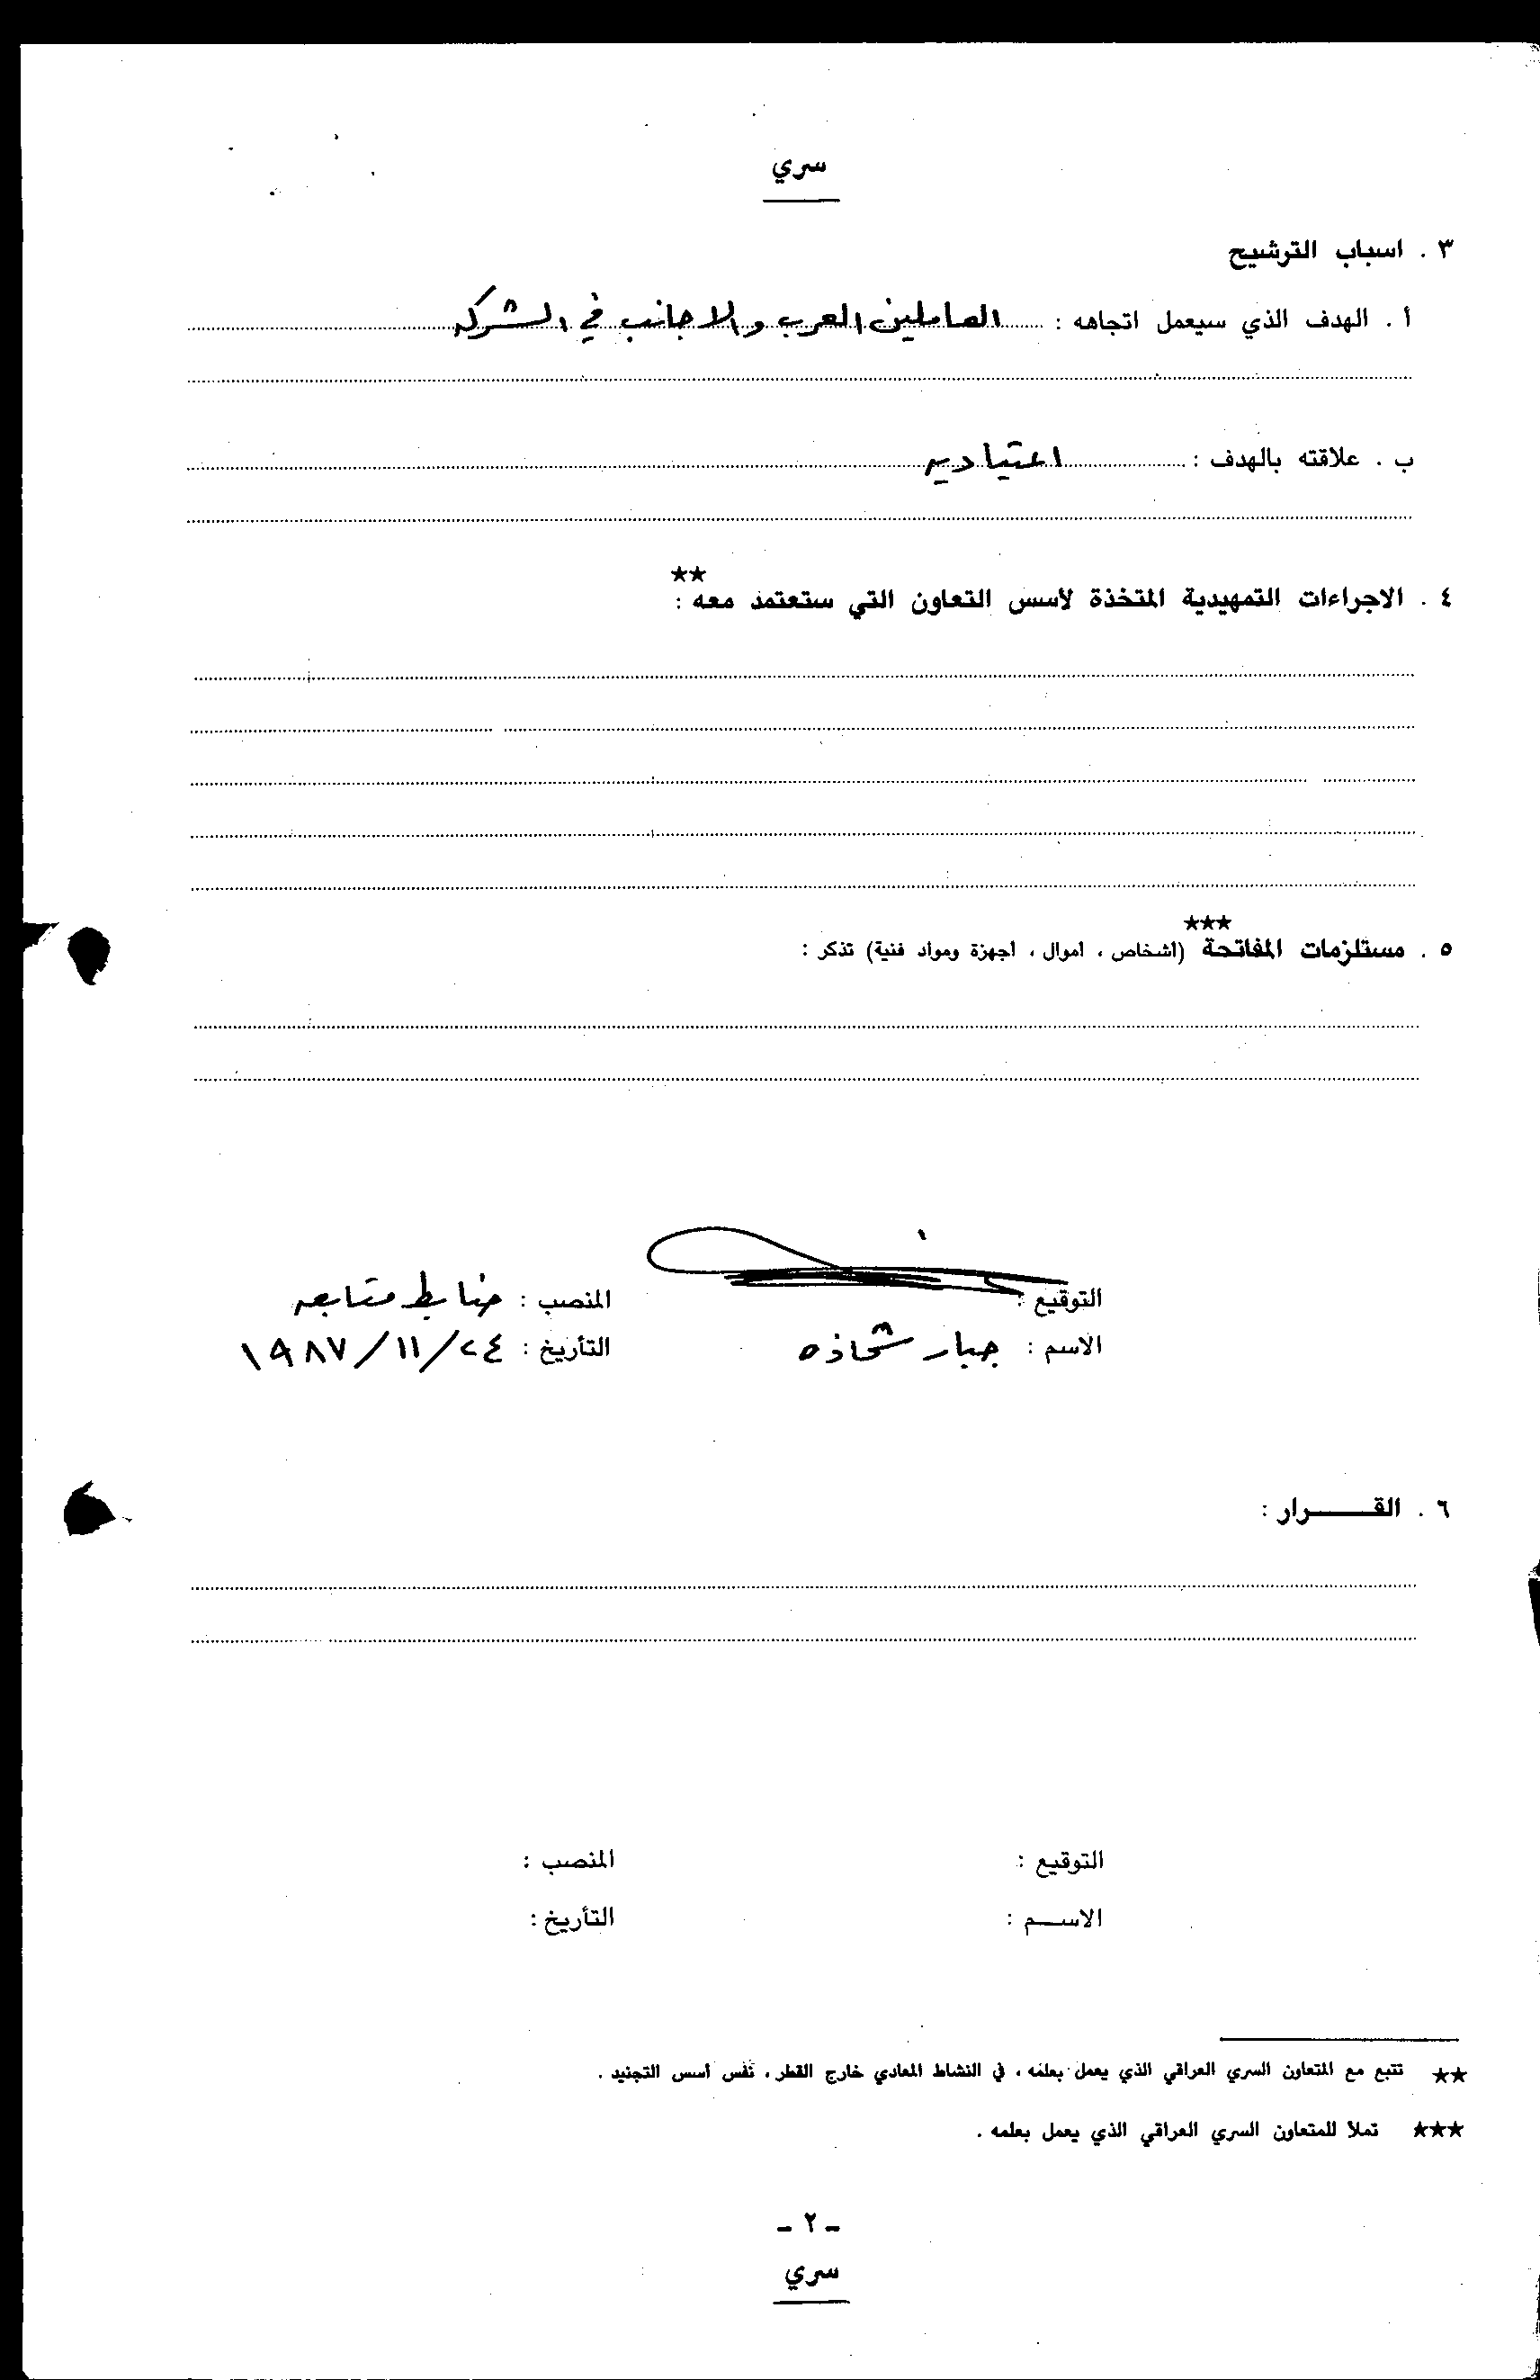 سري
٣ . اسباب الترشيح
أ . الهدف الذي سيعمل اتجاهه : العاملين العرب والاجانب في الشركه
ب . علاقته بالهدف : اعتياديه
★★
٤ . الاجراءات التمهيدية المتخذة لأسس التعاون التي ستعتمد معه :
★★★
٥ . مستلزمات المفاتحة (أشخاص ، اموال ، اجهزة ومواد فنية) تذكر :
التوقيع : المنصب : ضابط متابعه
الاسم : جبار شحاذه التأريخ : ٢٤/١١/١٩٨٧
٦ . القـــــرار :
التوقيع : المنصب :
الاســم : التأريخ :
★★ تتبع مع المتعاون السري العراقي الذي يعمل بعلمه ، في النشاط المعادي خارج القطر ، نفس أسس التجنيد .
★★★ تملأ للمتعاون السري العراقي الذي يعمل بعلمه .
- ٢ -
سري